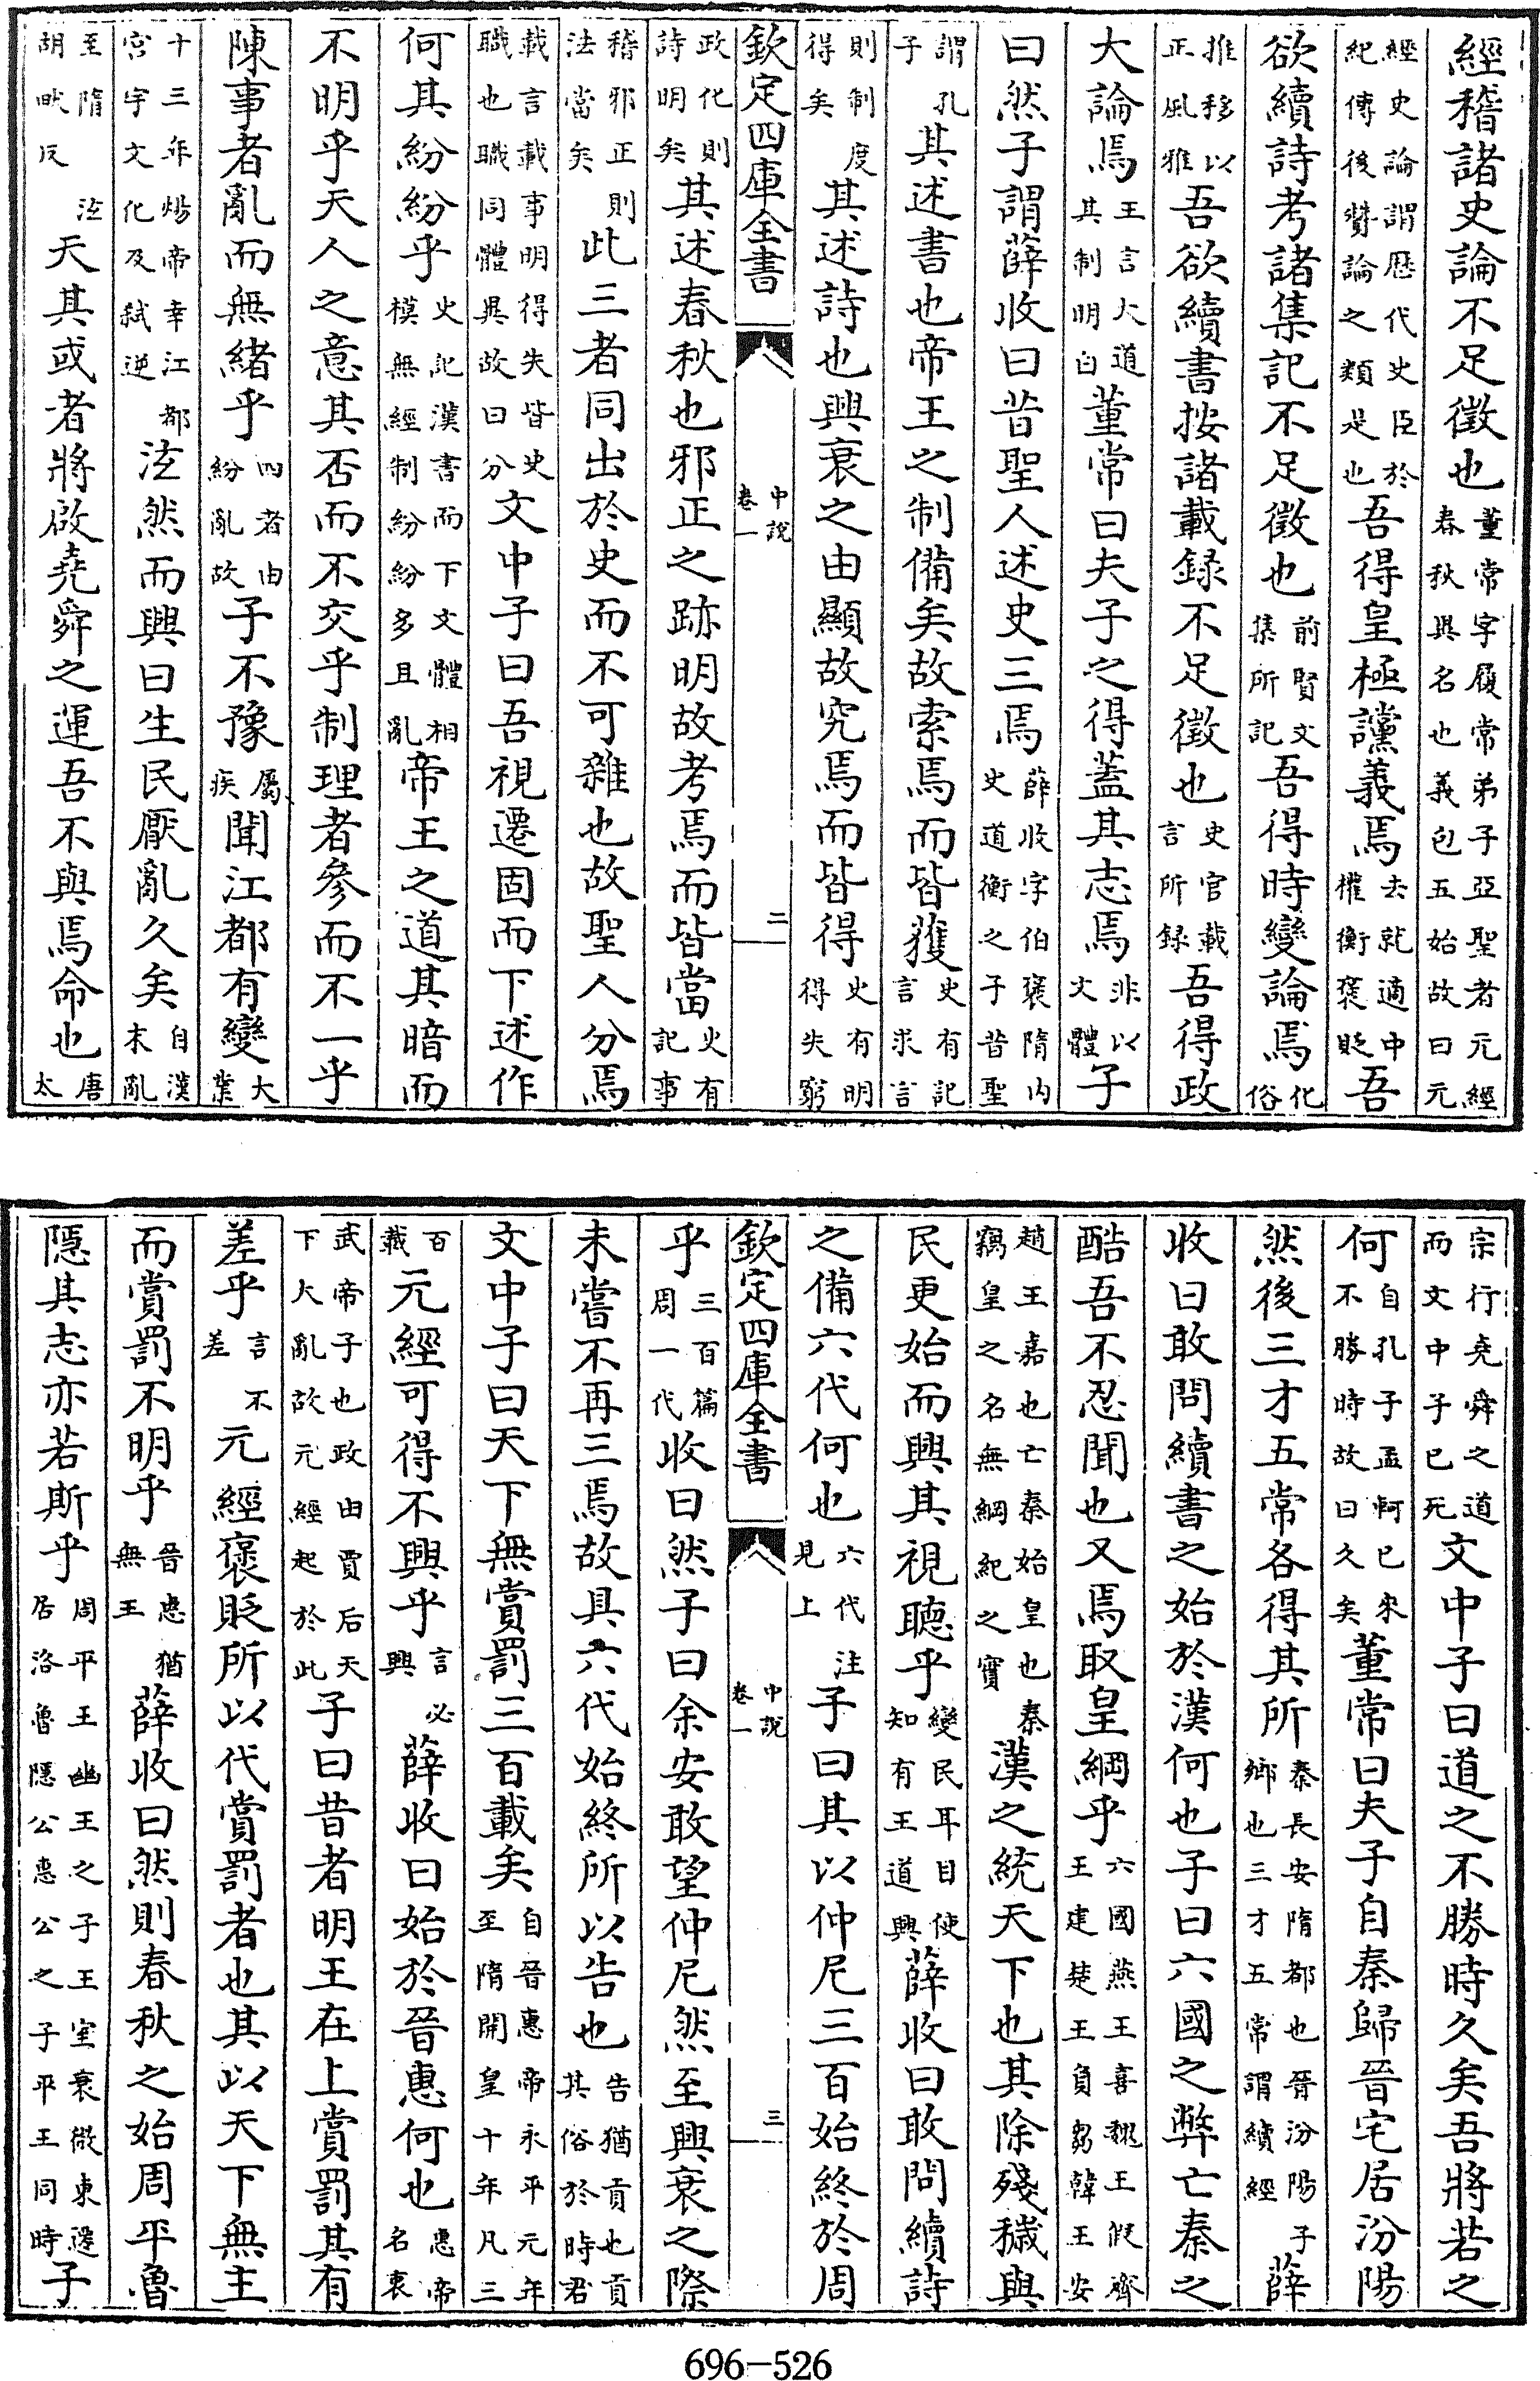 經稽諸史論不足徵也董常字履常弟子亞聖者元經春秋異名也義包五始故曰元
經史論謂歴代史臣於紀傳後贊論之類是也吾得皇極讜義焉去就適中權衡褒貶吾
欲續詩考諸集記不足徵也前賢文集所記吾得時變論焉化俗
推移以正風雅吾欲續書按諸載録不足徵也史官載言所録吾得政
大論焉王言大道其制明白董常曰夫子之得蓋其志焉非以文體子
曰然子謂薛收曰昔聖人述史三焉薛收字伯褒隋内史道衡之子昔聖
謂孔子其述書也帝王之制備矣故索焉而皆獲史有記言求言
則制度得矣其述詩也興衰之由顯故究焉而皆得史有明得失窮
欽定四庫全書 中說卷一 二
政化則詩明矣其述春秋也邪正之跡明故考焉而皆當史有記事
稽邪正則法當矣此三者同出於史而不可雜也故聖人分焉
載言載事明得失皆史職也職同體異故曰分文中子曰吾視遷固而下述作
何其紛紛乎史記漢書而下文體相模無經制紛紛多且亂帝王之道其暗而
不明乎天人之意其否而不交乎制理者參而不一乎
陳事者亂而無緒乎四者由紛亂故子不豫屬疾聞江都有變大業
十三年煬帝幸江都宫宇文化及弑逆泫然而興曰生民厭亂久矣自漢末亂
至隋泫胡畎反天其或者將啟堯舜之運吾不與焉命也唐太
宗行堯舜之道而文中子已死文中子曰道之不勝時久矣吾將若之
何自孔子孟軻已來不勝時故曰久矣董常曰夫子自秦歸晉宅居汾陽
然後三才五常各得其所秦長安隋都也晉汾陽子鄉也三才五常謂續經薛
收曰敢問續書之始於漢何也子曰六國之弊亡秦之
酷吾不忍聞也又焉取皇綱乎六國燕王喜魏王假齊王建楚王負芻韓王安
趙王嘉也亡秦始皇也秦竊皇之名無綱紀之實漢之統天下也其除殘穢與
民更始而興其視聽乎變民耳目使知有王道興薛收曰敢問續詩
之備六代何也六代注見上子曰其以仲尼三百始終於周
欽定四庫全書 中說卷一 三
乎三百篇周一代收曰然子曰余安敢望仲尼然至興衰之際
未嘗不再三焉故具六代始終所以告也告猶貢也貢其俗於時君
文中子曰天下無賞罰三百載矣自晉惠帝永平元年至隋開皇十年凡三
百載元經可得不興乎言必興薛收曰始於晉惠何也惠帝名衷
武帝子也政由賈后天下大亂故元經起於此子曰昔者明王在上賞罰其有
差乎言不差元經褒貶所以代賞罰者也其以天下無主
而賞罰不明乎晉惠猶無王薛收曰然則春秋之始周平魯
隱其志亦若斯乎周平王幽王之子王室衰微東遷居洛魯隱公惠公之子平王同時子
696-526